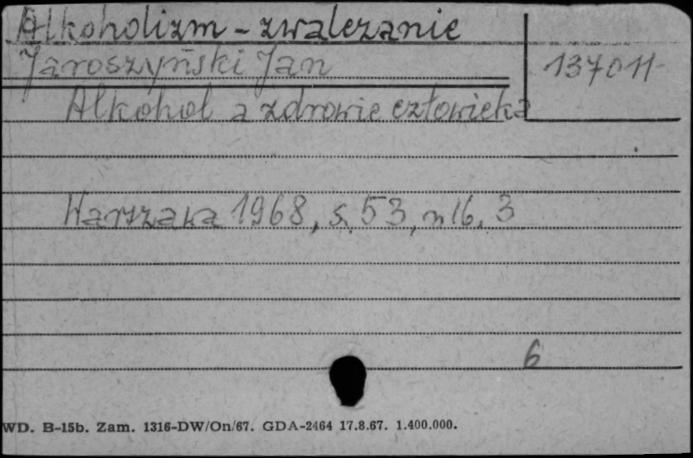 Alkoholizm - zwalczanie
Jaroszyński Jan
137011
Alkohol a zdrowie człowieka
Warszawa 1968, s. 53, nlb. 3
6
WD. B-15b. Zam. 1316-DW/On/67. GDA-2464 17.8.67. 1.400.000.